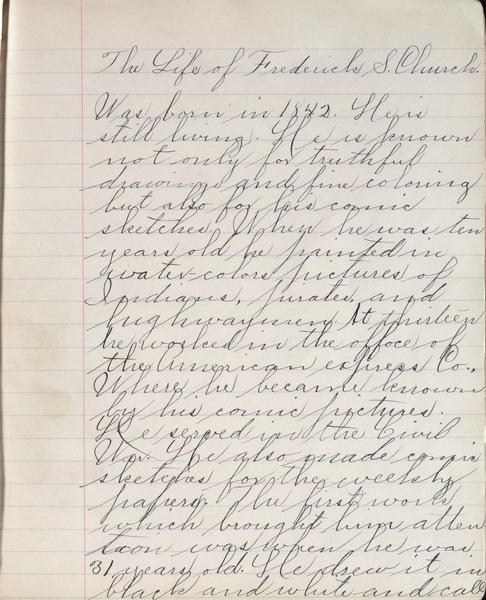 The Life of Frederick S. Church.
Was born in 1842. He is
still living. He is known
not only for truthful
drawings and fine coloring
but also for his comic
sketches. When he was ten
years old he painted in
water-colors pictures of
Indians, pirates, and
highwaymen. At thirteen
he worked in the office of
the American express Co.,
Where he became known
by his comic pictures.
He served in the Civil
War. He also made comic
sketches for the weekly
papers. The first work
which brought him atten
tion was when he was
31 years old. He drew it in
black and white and call